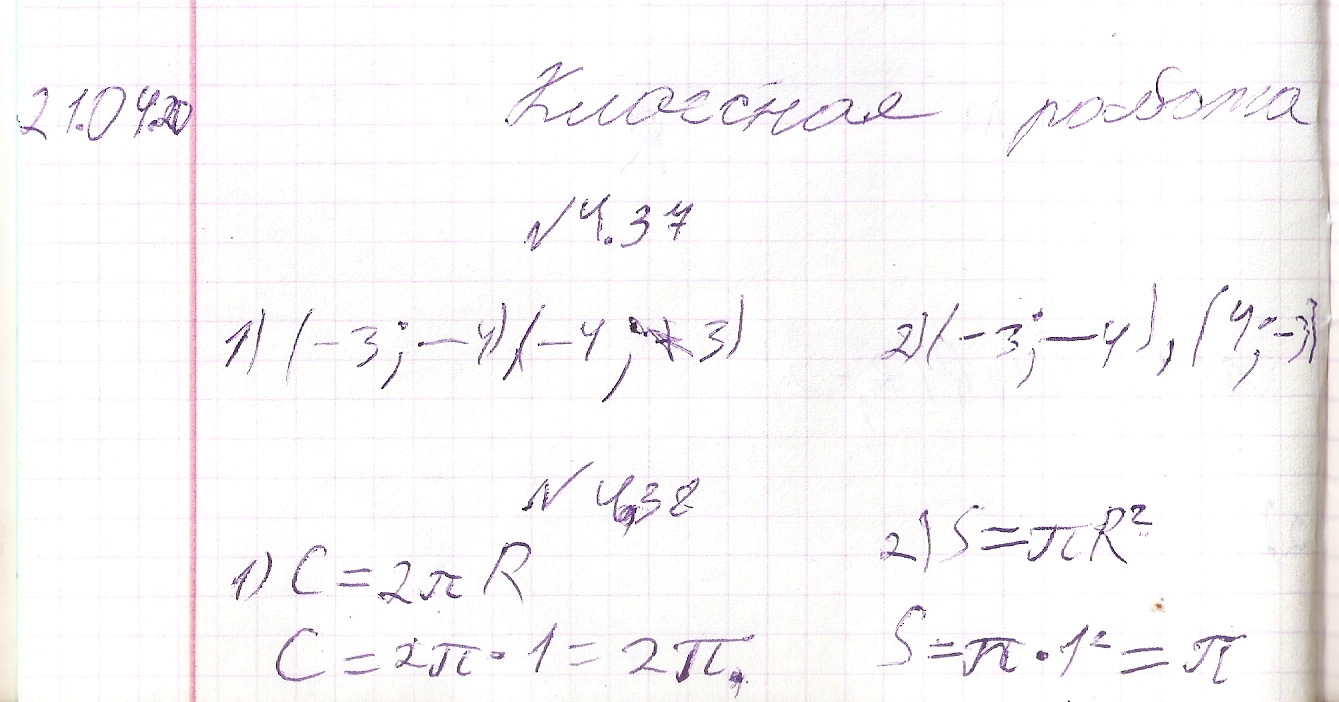 21.04.20 Классная работа
№4.37
1) (-3; -4), (-4; 3) 2) (-3; -4), (4; -3)
№4.38
1) C = 2πR 2) S = πR²
C = 2π·1 = 2π, S = π·1² = π